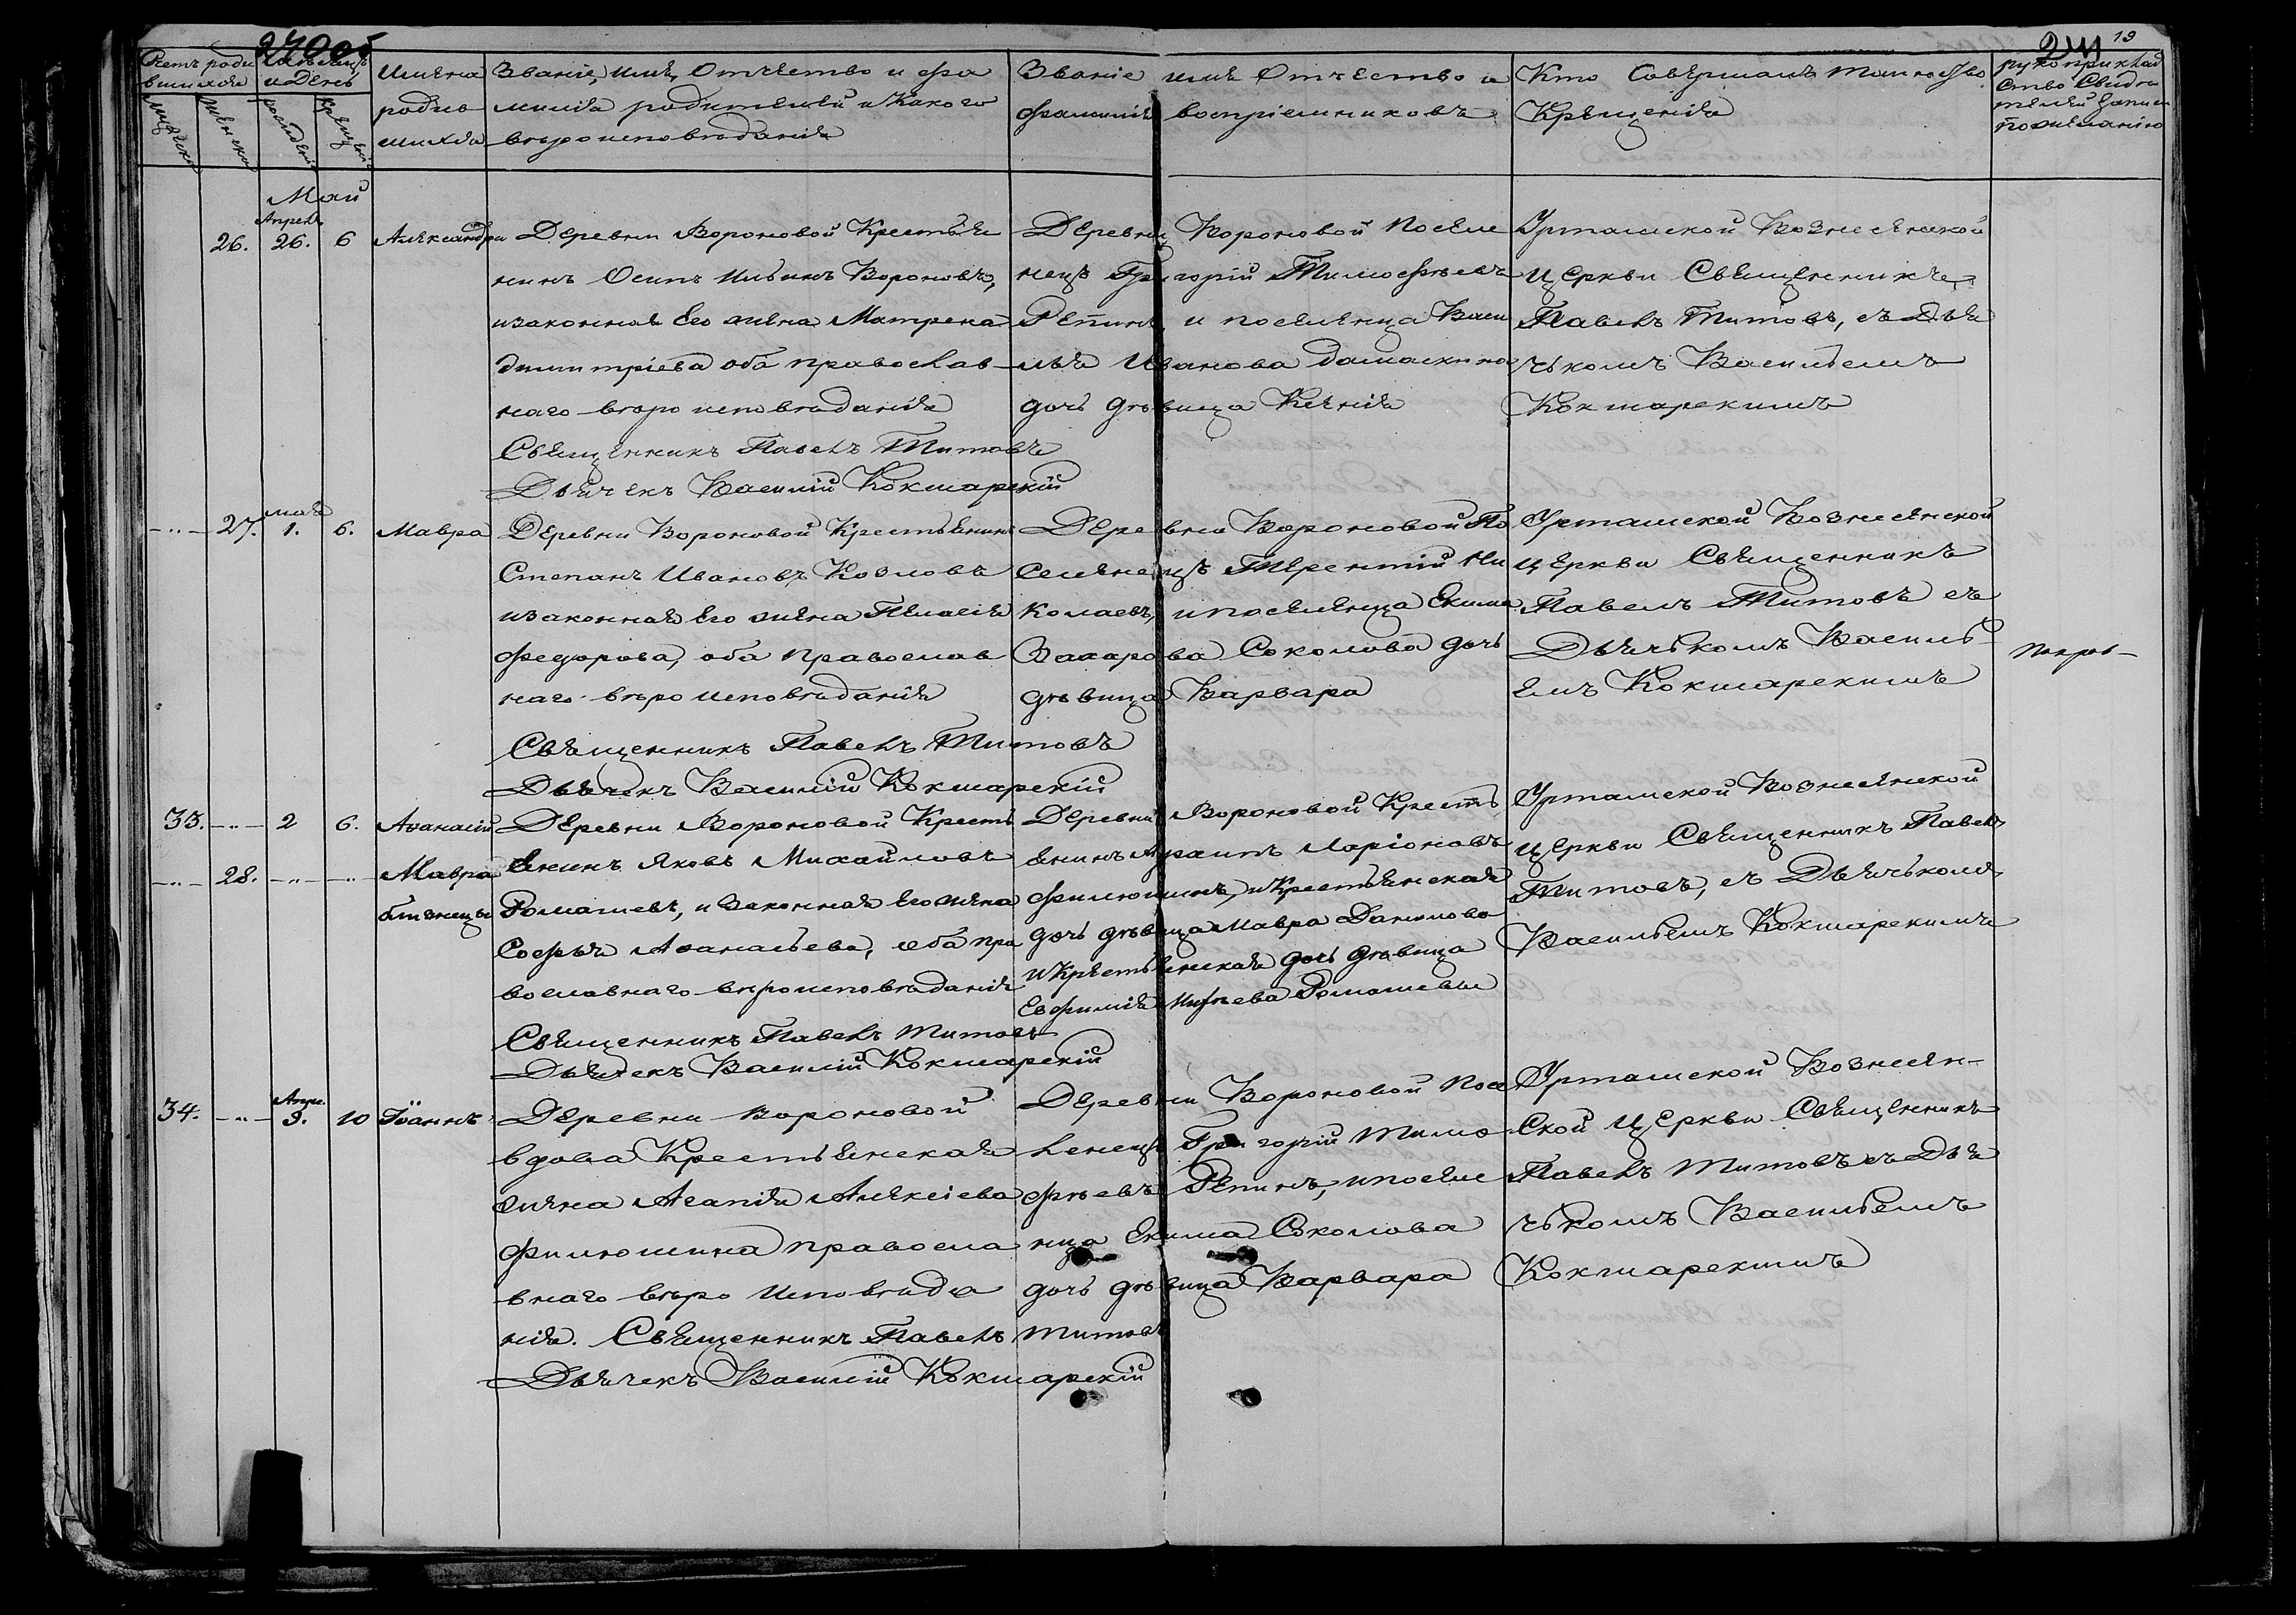 270об
241
19
Счетъ роди
вшихся
Мѣсяцъ
и День
Имена
родив
шихся
Званіе, имя, Отчество и фа
милія родителей и Какого
вѣроисповѣданія
Званіе имя Отчество и
фамилія воспріемниковъ
Кто Совершалъ таинство
Крещенія
рукоприклад
ство Свидѣ
телей записи
пожеланію
мужеска
женска
рожденія
крещенія
Май
Апрель
26. 26. 6 Александра
Деревни Вороновой Крестья
нинъ Осипъ Ильинъ Вороновъ,
изаконная Его жена Матрена
димитріева оба православ
наго вѣро исповѣданія
Священникъ Павелъ Титовъ
Дьячекъ Василій Кокшарскій
Деревни Вороновой Посели
нецъ Григорій Тимофѣевъ
Репинъ, и поселенца Васи
лья Иванова дамаскина
дочь дѣвица Ксенія
Урташской Вознесенской
Церкви Священникъ
Павелъ Титовъ, съ Дья
чькомъ Васильемъ
Кокшарскимъ
мая
27. 1. 6. Мавра
Деревни Вороновой Крестьянинъ
Степанъ Ивановъ Козловъ
изаконная Его жена Пелагія
Федорова, оба Православ
наго вѣро исповѣданія
Священникъ Павелъ Титовъ
Дьячекъ Василій Кокшарскій
Деревни Вороновой По
селенецъ Терентій Ни
колаевъ, и поселенца Екима
Захарова Соколова дочь
дѣвица Варвара
Урташской Вознесенской
церкви Священникъ
Павелъ Титовъ съ
Дьячькомъ Василь
емъ Кокшарскимъ
33. 2 6. Аѳанасій
28. Мавра
близнецы
Деревни Вороновой Кресть
янинъ Яковъ Михайловъ
Ромашевъ, и Законная Его жена
Софья Аѳанасьева, оба пра
вославнаго вѣроисповѣданія
Священникъ Павелъ Титовъ
Дьячекъ Василій Кокшарскій
Деревни Вороновой Кресть
янинъ Ларіоновъ
Филюшинъ, и Крестьянская
дочь дѣвица Мавра Данилова
и Крестьянская дочь дѣвица
Евфимія Ромашева
Урташской Вознесенской
церкви Священникъ Павелъ
Титовъ, съ Дьячькомъ
Васильемъ Кокшарскимъ
Апре.
34. 3. 10 Іоаннъ
Деревни Вороновой
вдова Крестьянская
жена Агапія Алексіева
Филюшина правосла
внаго вѣро исповѣда
нія. Священникъ Павелъ Титовъ
Дьячекъ Василій Кокшарскій
Деревни Вороновой Посе
ленецъ Григорій Тимо
фѣевъ Репинъ, и поселе
нца Екима Соколова
дочь дѣвица Варвара
Урташской Вознесен
ской Церкви Священникъ
Павелъ Титовъ съ Дья
чькомъ Васильемъ
Кокшарскимъ